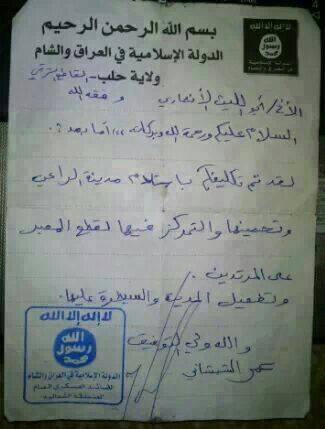 بسم الله الرحمن الرحيم
الدولة الإسلامية في العراق والشام
ولاية حلب - القاطع الشرقي
لا إله إلا الله
الله
رسول
محمد
الدولة الإسلامية
في العراق والشام
الأخ / أبو الليث الأنصاري وفقه الله
السلام عليكم ورحمة الله وبركاته ،، أما بعد :
لقد تم تكليفكم باستلام مدينة الراعي
وتحصينها والتمركز فيها لقطع المعبر
على المرتدين .
ولتطهيل المدينة والسيطرة عليها .
والله ولي التوفيق
عمر الشيشاني
لا إله إلا الله
الله
رسول
محمد
الدولة الإسلامية في العراق والشام
القائد العسكري العام
للمنطقة الشمالية